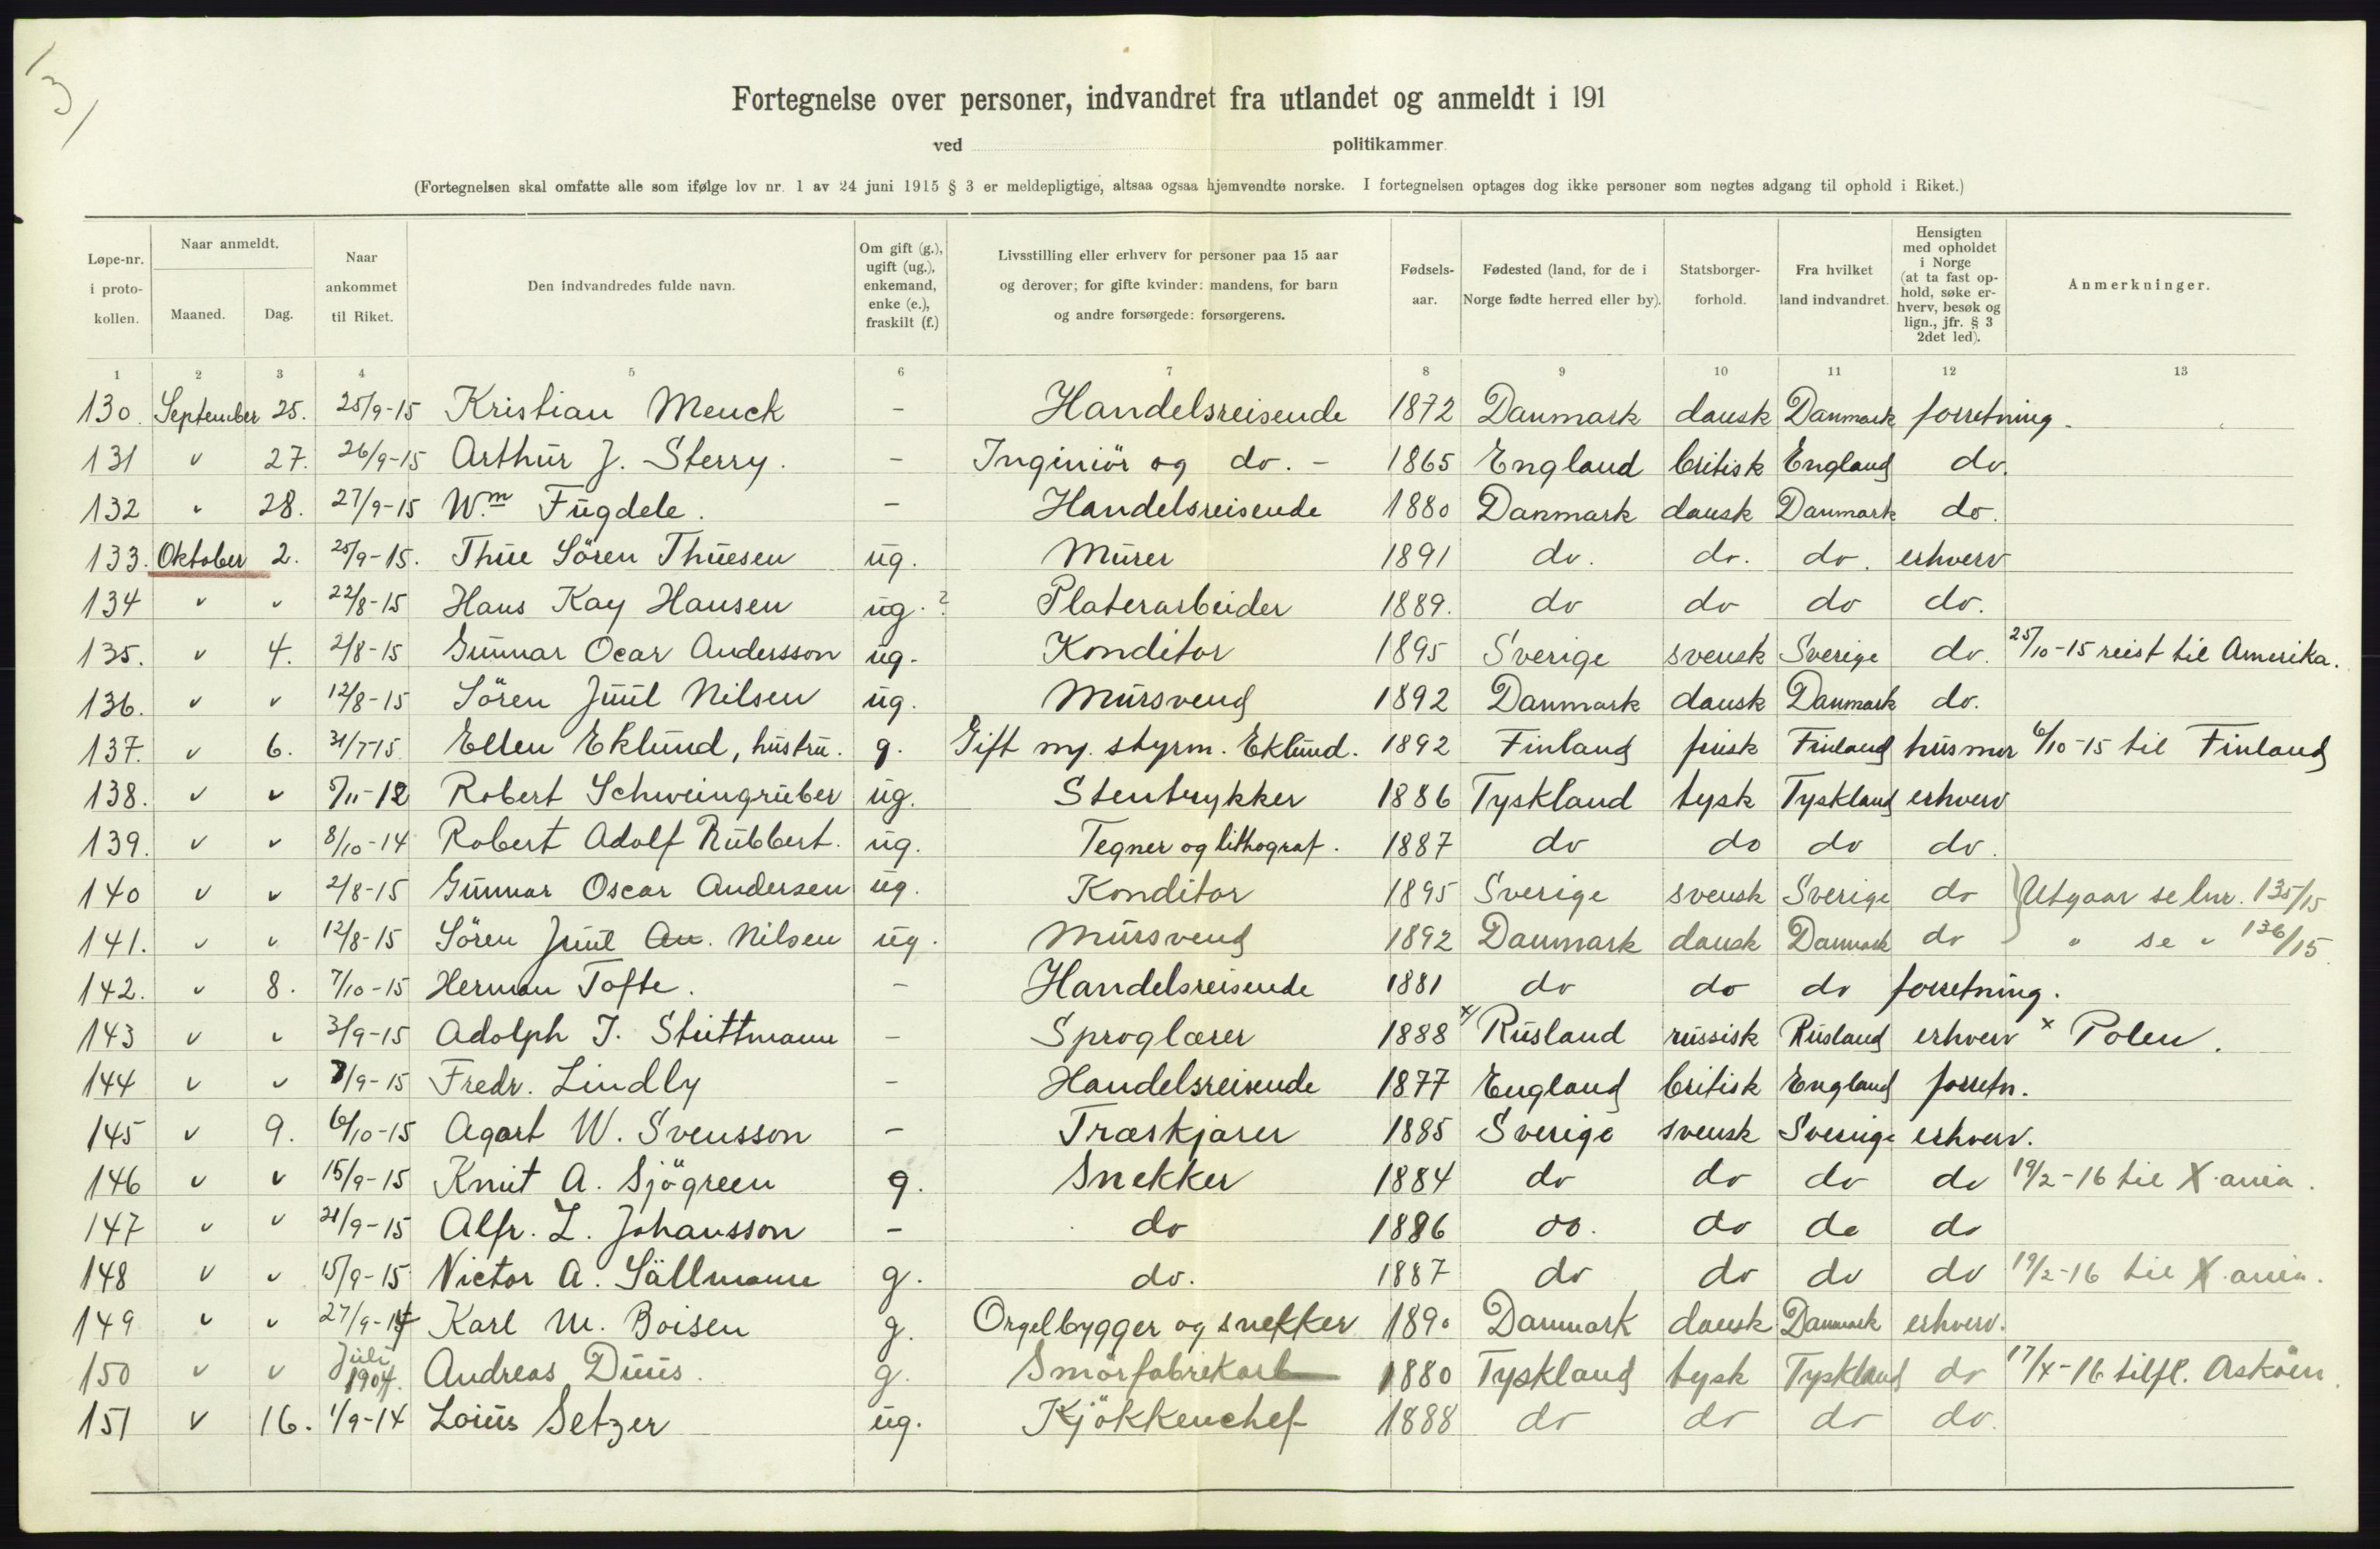 3
Fortegnelse over personer, indvandret fra utlandet og anmeldt i 191
ved politikammer
(Fortegnelsen skal omfatte alle som ifølge lov nr. 1 av 24 juni 1915 § 3 er meldepligtige, altsaa ogsaa hjemvendte norske. I fortegnelsen optages dog ikke personer som negtes adgang til ophold i Riket.)
Løpe-nr. i proto-kollen. Naar anmeldt. Maaned. Dag. Naar ankommet til Riket. Den indvandredes fulde navn. Om gift (g.), ugift (ug.), enkemand, enke (e.), fraskilt (f.) Livsstilling eller erhverv for personer paa 15 aar og derover; for gifte kvinder: mandens, for barn og andre forsørgede: forsørgerens. Fødsels-aar. Fødested (land, for de i Norge fødte herred eller by). Statsborger-forhold. Fra hvilket land indvandret. Hensigten med opholdet i Norge (at ta fast op-hold, søke er-hverv, besøk og lign., jfr. § 3 2det led). Anmerkninger.
1 2 3 4 5 6 7 8 9 10 11 12 13
130. September 25. 25/9-15 Kristian Menck - Handelsreisende 1872 Danmark dansk Danmark forretning.
131 " 27. 26/9-15 Arthur J. Sterry. - Ingeniör og do. - 1865 England britisk England do.
132 " 28. 27/9-15 Wm Fugdele. - Handelsreisende 1880 Danmark dansk Danmark do.
133. Oktober 2. 25/9-15. Thue Sören Thuesen ug. Murer 1891 do. do. do. erhverv
134 " " 22/8-15 Hans Kay Hansen ug.? Platerarbeider 1889. do do do do.
135. " 4. 2/8-15 Gunnar Ocar Andersson ug. Konditor 1895 Sverige svensk Sverige do. 25/10-15 reist til Amerika.
136. " " 12/8-15 Sören Juul Nilsen ug. Mursvend 1892 Danmark dansk Danmark do.
137. " 6. 31/7-15 Ellen Eklund, hustru. g. Gift m/. styrm. Eklund. 1892 Finland finsk Finland husmor 6/10-15 til Finland
138. " " /11-12 Robert Schweingruber ug. Stentrykker 1886 Tyskland tysk Tyskland erhverv
139. " " 8/10-14 Robert Adolf Rubbert. ug. Tegner og lithograf. 1887 do do do do.
140 " " 2/8-15 Gunnar Oscar Andersen ug. Konditor 1895 Sverige svensk Sverige do Utgaar se lnr. 135/15
141. " " 12/8-15 Sören Juul An. Nilsen ug. Mursvend 1892 Danmark dansk Danmark do " se " 136/15.
142. " 8. 7/10-15 Herman Tofte. - Handelsreisende 1881 do do do forretning.
143 " " 3/9-15 Adolph J. Stuttmann - Sproglærer 1888 x/ Rusland russisk Rusland erhverv x Polen.
144 " " 7/9-15 Fredr. Lindly - Handelsreisende 1877 England britisk England forretn.
145 " 9. 6/10-15 Agart W. Svensson - Træskjærer 1885 Sverige svensk Sverige erhverv.
146 " " 15/9-15 Knut A. Sjögreen g. Snekker 1884 do do do do 19/2-16 til X.ania.
147 " " 21/9-15 Alfr. L. Johansson - do 1886 do. do do do
148 " " 15/9-15 Victor A. Sällmann g. do. 1887 do do do do 19/2-16 til X.ania.
149 " " 27/9-14 Karl M. Boisen g. Orgelbygger og snekker 1890 Danmark dansk Danmark erhverv.
150 " " Juli 1904. Andreas Duus. g. Smörfabrikarb 1880 Tyskland tysk Tyskland do 17/4-16 tilfl. Asköen.
151 " 16. 1/9-14 Loius Setzer ug. Kjökkenchef 1888 do do do do.